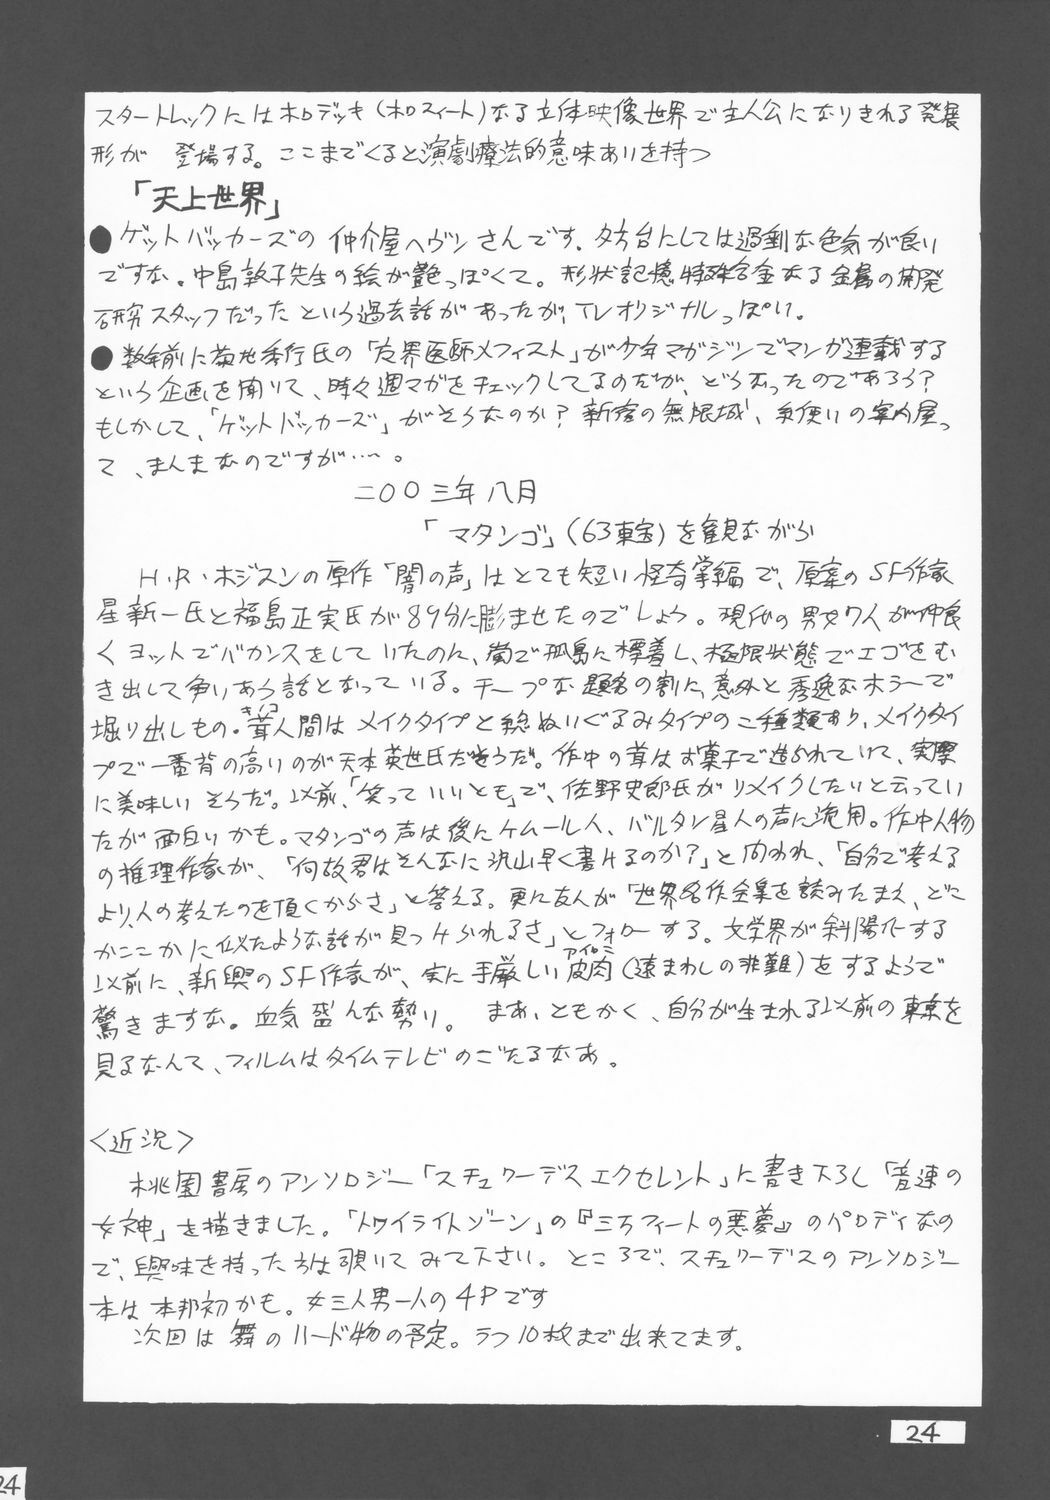 スタートレックにはホロデッキ(ホロスイート)なる立体映像世界で主人公になりきれる発展
形が 登場する。ここまでくると演劇療法的意味あいを持つ
「天上世界」
●ゲットバッカーズの仲介屋ヘヴンさんです。夕方台にしては過剰な色気が良い
ですな。中島敦子先生の絵が艶っぽくて。形状記憶特殊合金なる金属の開発
研究スタッフだったという過去話があったが、TVオリジナルっぽい。
●数年前に菊地秀行氏の「魔界医師メフィスト」が少年マガジンでマンガ連載する
という企画を聞いて、時々週マガをチェックしてるのだが、どうなったのであろう?
もしかして、「ゲットバッカーズ」がそうなのか?新宿の無限城、糸使いの案内屋っ
て、まんまなのですが…。
二〇〇三年八月
「マタンゴ」(63東宝)を観ながら
H・R・ホジスンの原作「闇の声」はとても短い怪奇掌編で、原案のSF作家
星新一氏と福島正実氏が89分に膨ませたのでしょう。現代の男女7人が仲良
くヨットでバカンスをしていたのに、嵐で孤島に漂着し、極限状態でエゴをむ
き出して争いあう話となっている。チープな題名の割に、意外と秀逸なホラーで
掘り出しもの。茸人間はメイクタイプと純ぬいぐるみタイプの二種類あり、メイクタイ
キノコ
プで一番背の高いのが天本英世氏だそうだ。作中の茸はお菓子で造られていて、実際
に美味しいそうだ。以前、「笑っていいとも」で、佐野史郎氏がリメイクしたいと云ってい
たが面白いかも。マタンゴの声は後にケムール人、バルタン星人の声に流用。作中人物
の推理作家が、「何故君はそんなに沢山早く書けるのか?」と問われ、「自分で考える
より、人の考えたのを頂くからさ」と答える。更に友人が「世界名作全集を読みたまえ、どこ
かここかに似たような話が見つけられるさ」とフォローする。文学界が斜陽化する
以前に、新興のSF作家が、実に手厳しい皮肉(遠まわしの非難)をするようで
アイロニー
驚きますな。血気盛んな勢い。 まあ、ともかく、自分が生まれる以前の東京を
見るなんて、フィルムはタイムテレビのごたるなあ。
<近況>
桃園書房のアンソロジー「スチュワーデスエクセレント」に書き下ろし「音速の
女神」を描きました。「トワイライトゾーン」の『三万フィートの悪夢』のパロディなの
で、興味を持った方は覗いてみて下さい。ところで、スチュワーデスのアンソロジー
本は本邦初かも。女三人男一人の4Pです
次回は舞のハード物の予定。ラフ10枚まで出来てます。
24
24